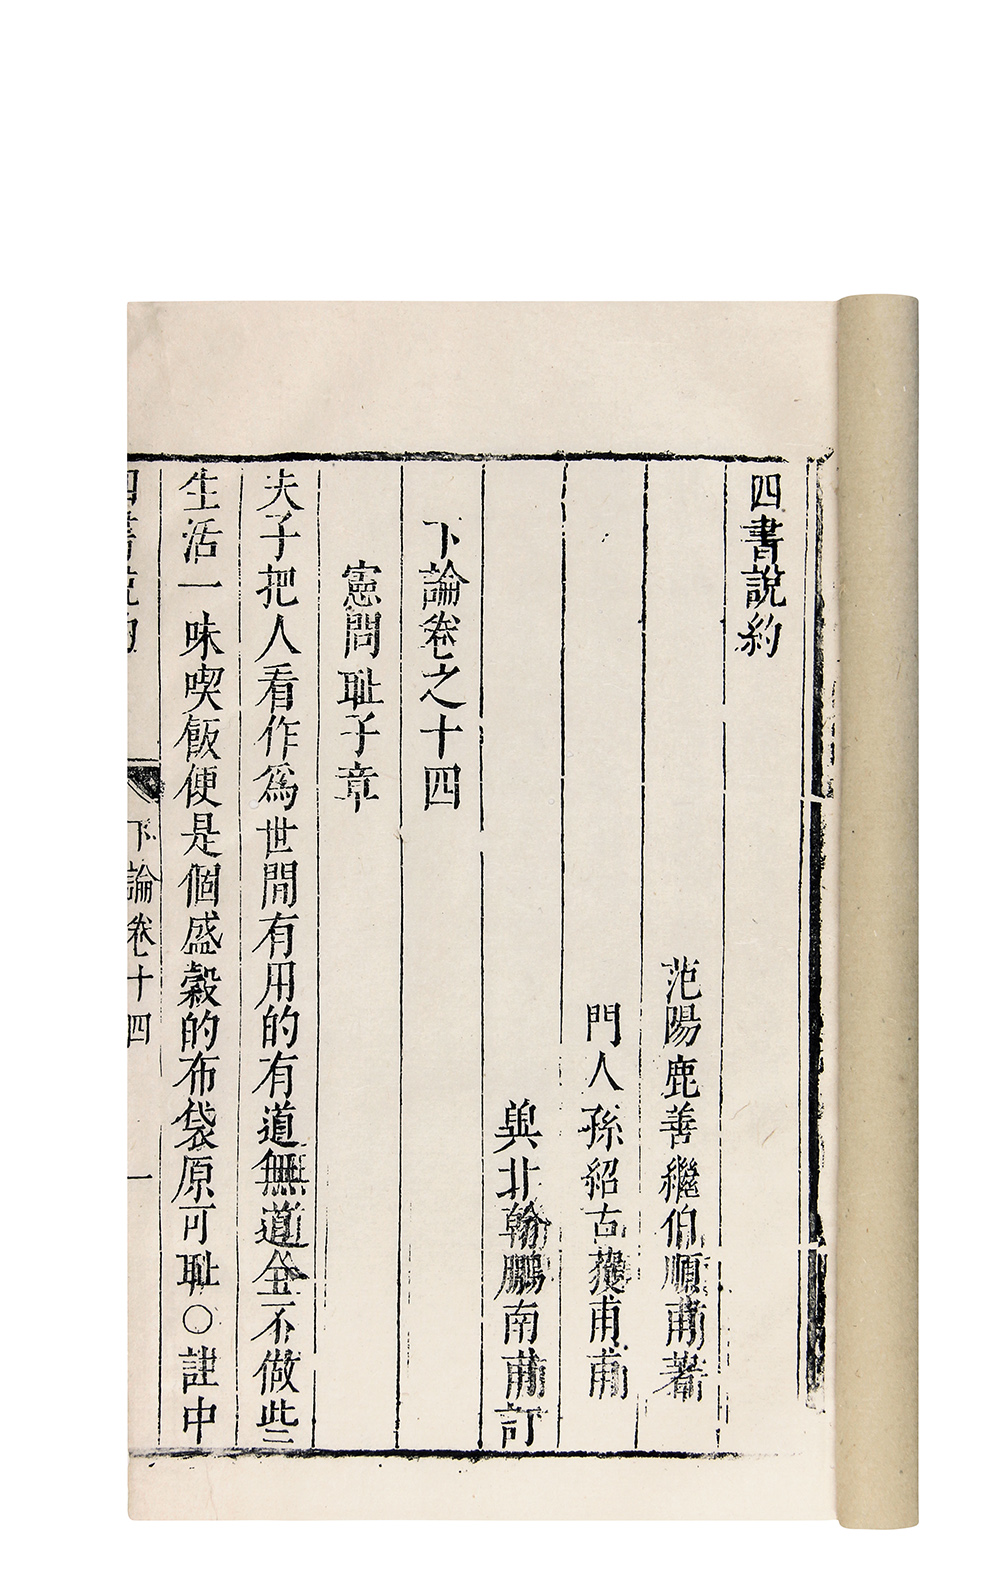 四書說約
范陽鹿善繼伯順甫著
門人孫紹古 甫甫
北翰鵬南甫訂
下論卷之十四
憲問耻子章
夫子把人看作爲世間有用的有道無道全不做些
生活一味喫飯便是個盛穀的布袋原可耻○註中
四書說約 下論卷十四 一